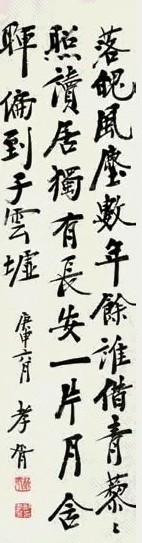 落魄風塵數年餘誰借青藜
照讀居獨有長安一片月含
暉偏到子雲墟
庚申六月 孝胥